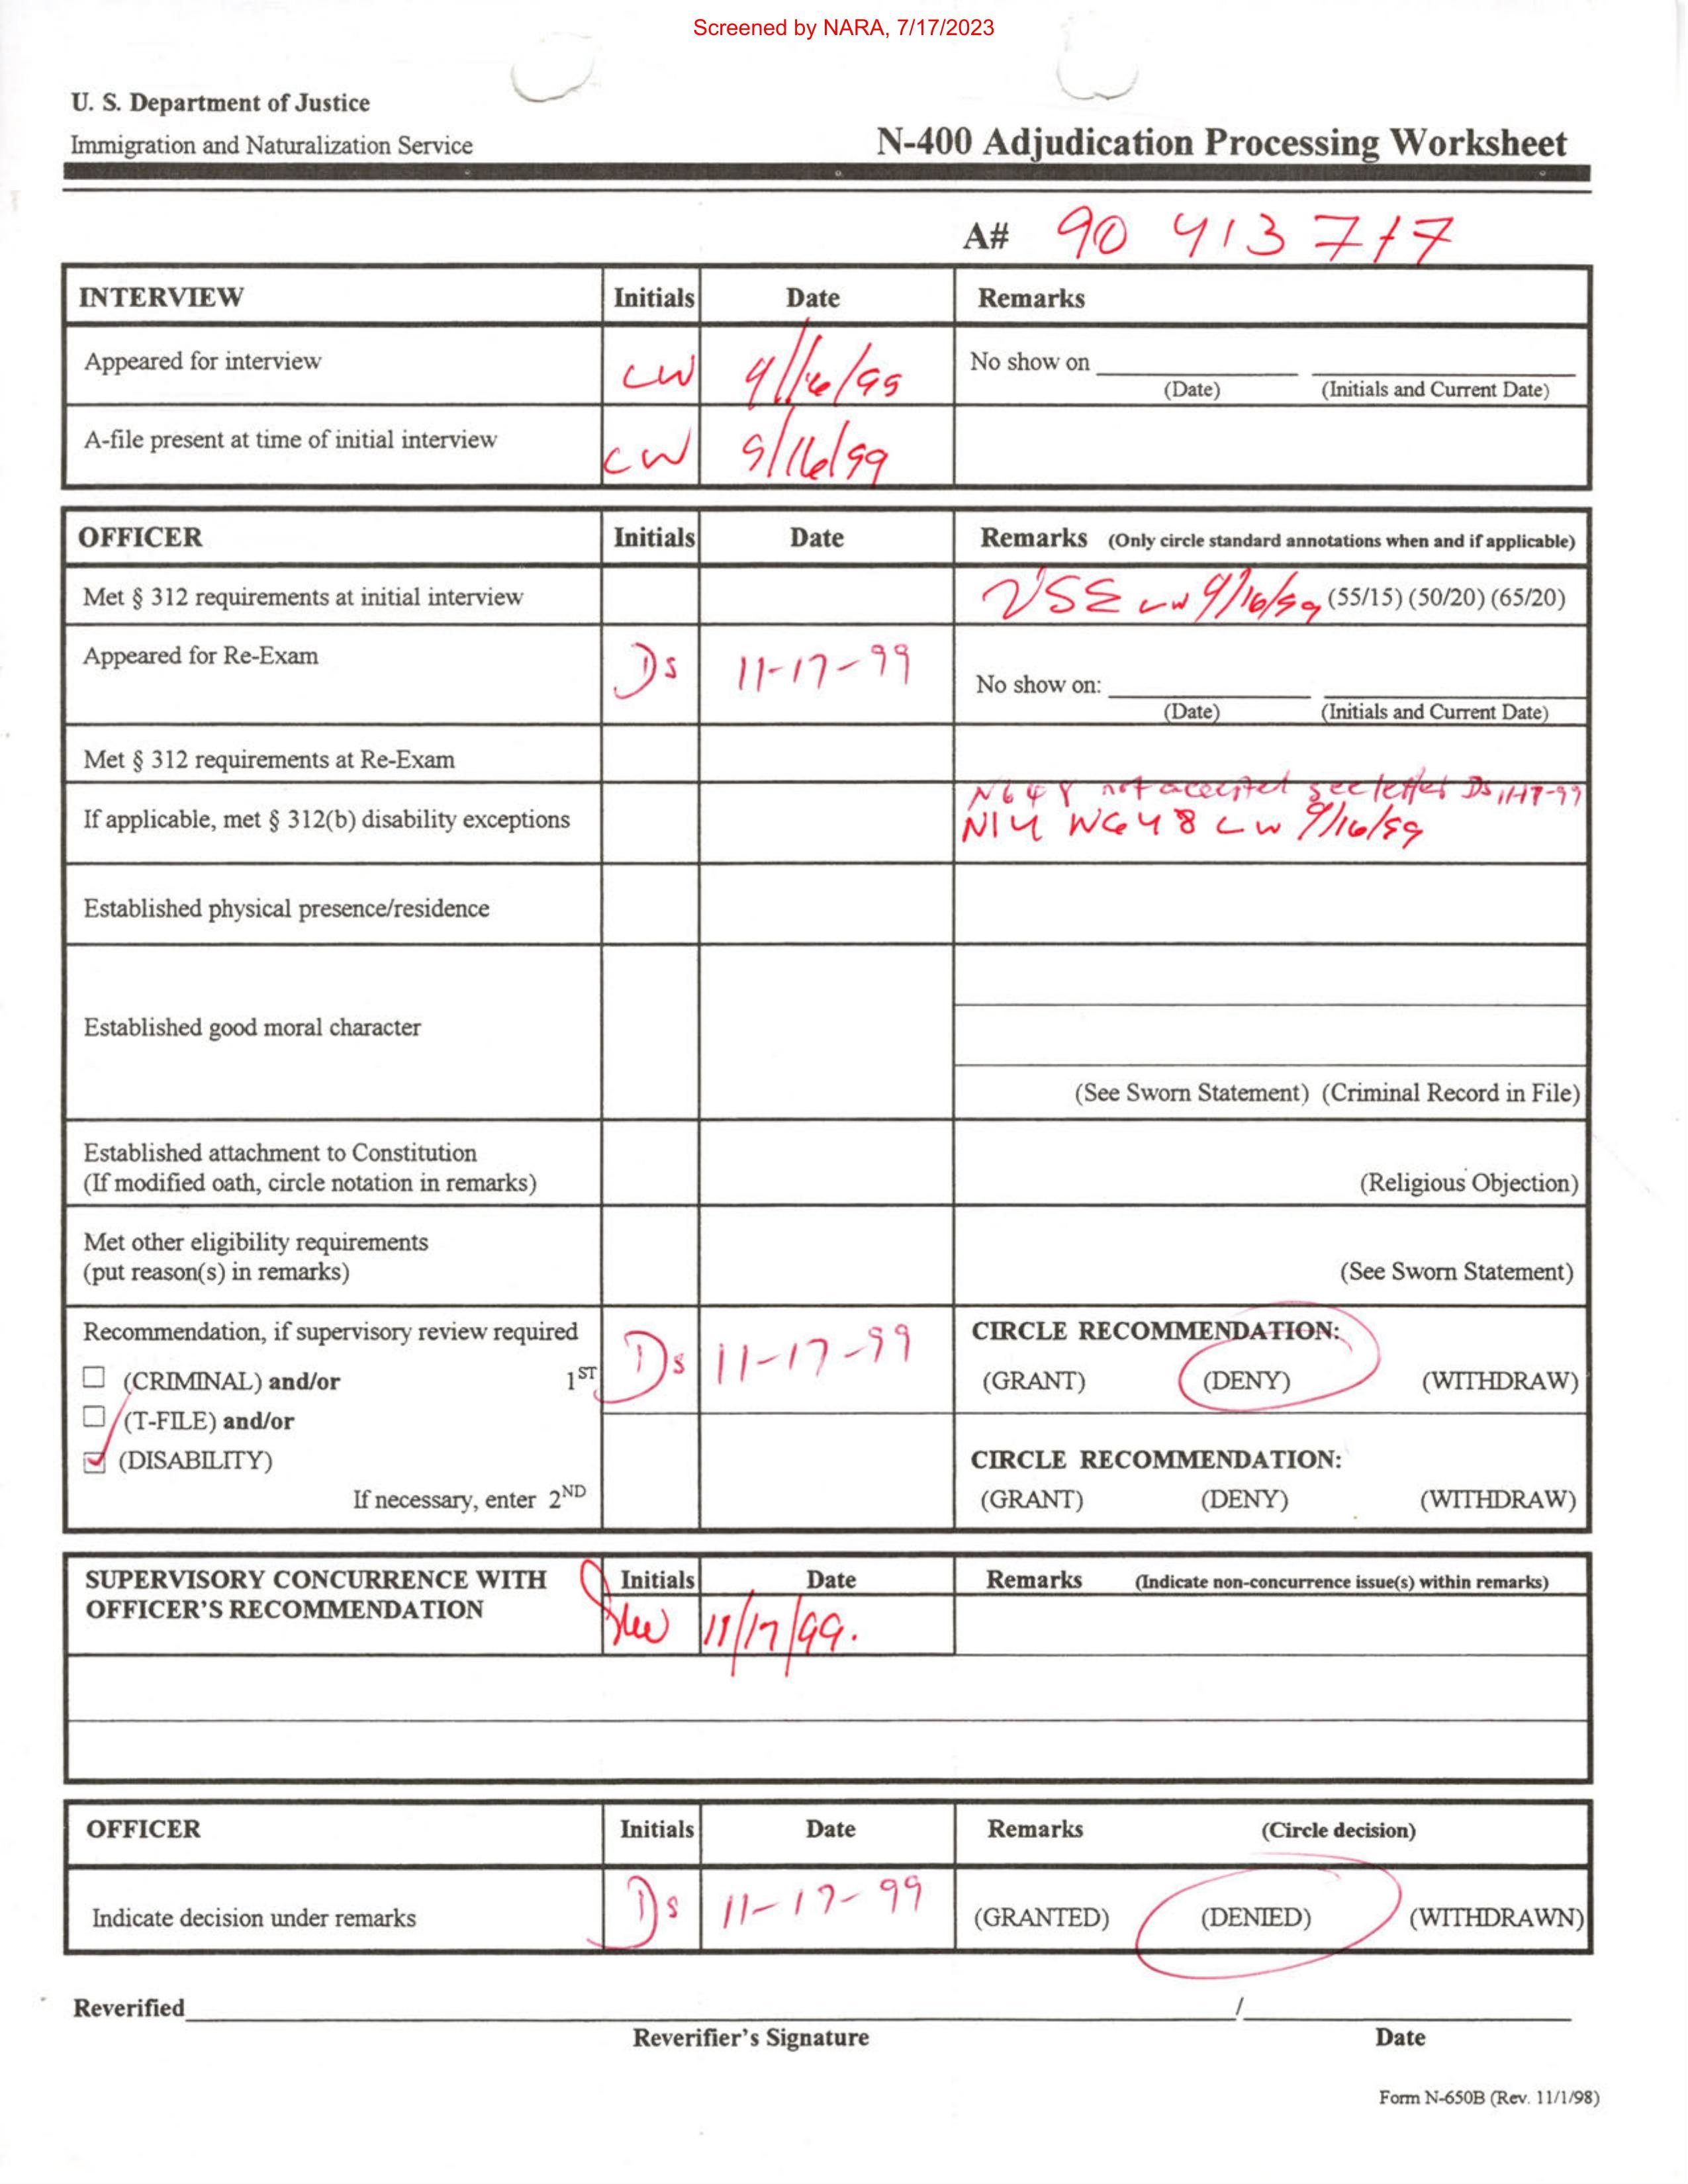 Screened by NARA, 7/17/2023
U. S. Department of Justice
Immigration and Naturalization Service
N-400 Adjudication Processing Worksheet
A# 90 413 717
INTERVIEW Initials Date Remarks
Appeared for interview CW 9/16/99 No show on
(Date) (Initials and Current Date)
A-file present at time of initial interview CW 9/16/99
OFFICER Initials Date Remarks (Only circle standard annotations when and if applicable)
Met § 312 requirements at initial interview CW 9/16/99 (55/15) (50/20) (65/20)
Appeared for Re-Exam Ds 11-17-99 No show on:
(Date) (Initials and Current Date)
Met § 312 requirements at Re-Exam
N648 not accepted see letter Ds 11-17-99
If applicable, met § 312(b) disability exceptions N14 N648 CW 9/16/99
Established physical presence/residence
Established good moral character
(See Sworn Statement) (Criminal Record in File)
Established attachment to Constitution
(If modified oath, circle notation in remarks) (Religious Objection)
Met other eligibility requirements
(put reason(s) in remarks) (See Sworn Statement)
Recommendation, if supervisory review required Ds 11-17-99 CIRCLE RECOMMENDATION:
(CRIMINAL) and/or 1ST (GRANT) (DENY) (WITHDRAW)
(T-FILE) and/or
(DISABILITY) CIRCLE RECOMMENDATION:
If necessary, enter 2ND (GRANT) (DENY) (WITHDRAW)
SUPERVISORY CONCURRENCE WITH Initials Date Remarks (Indicate non-concurrence issue(s) within remarks)
OFFICER'S RECOMMENDATION 11/17/99.
OFFICER Initials Date Remarks (Circle decision)
Indicate decision under remarks Ds 11-17-99 (GRANTED) (DENIED) (WITHDRAWN)
Reverified /
Reverifier's Signature Date
Form N-650B (Rev. 11/1/98)